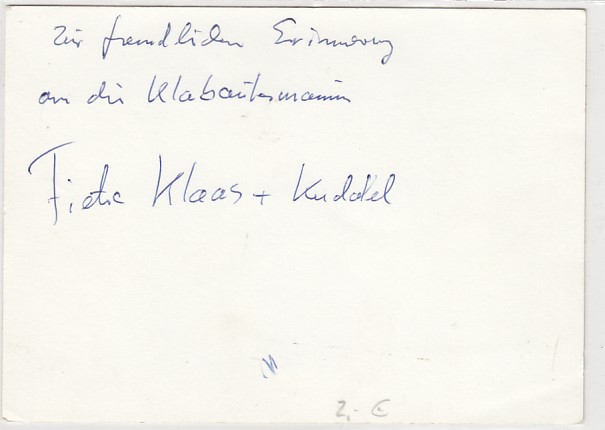 Zur freundlichen Erinnerung
an die Klabautermänner
Fietje Klaas + Kuddel
2,- €